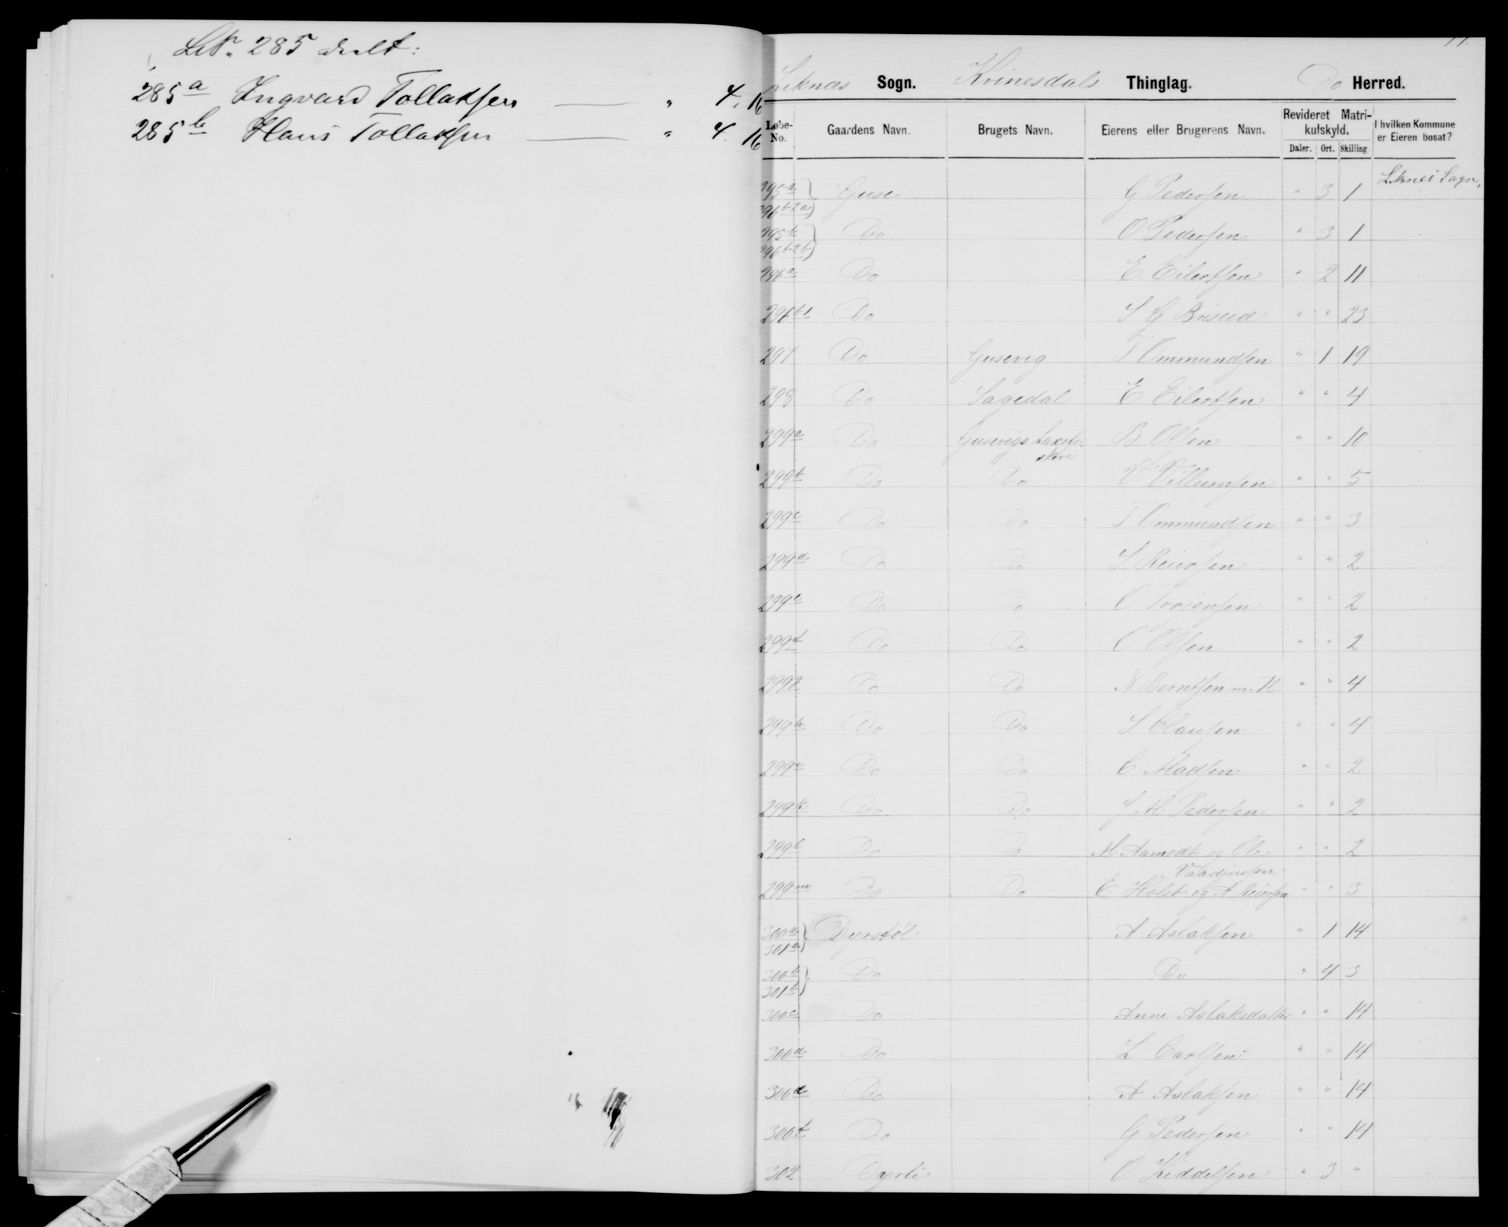 LNo. 285 deelt:
285a Ingvard Tollaksen — " 4. 16
285b Hans Tollaksen — " 4 16
Liknæs Sogn. Kvinesdals Thinglag. Do Herred.
Løbe-No. Gaardens Navn. Brugets Navn. Eierens eller Brugerens Navn. Revideret Matrikulskyld. I hvilken Kommune er Eieren bosat?
Daler. Ort. Skilling
Liknes Sogn.
295a Guse G Pedersen " 3 1
296b2a
295b Do O Pedersen " 3 1
296b2b
296a Do E Eilertsen " 2 11
296b1 Do S G Briseid " " 23
297 Do Gusevig T Ommundsen " 1 19
298 Do Sagedal E Eilertsen " " 4
299a Do Gusevigs Laxefiskeri B Olsen " " 10
299b Do Do V Villumsen " " 5
299c Do Do T Ommundsen " " 3
299d Do Do S Reiersen " " 2
299e Do Do O Torjensen " " 2
299f Do Do O Olsen " " 2
299g Do Do N Berntsen m. fl. " " 4
299h Do Do S Clausen " " 4
299i Do Do C Madsen " " 2
299k Do Do J M Pedersen " " 2
299l Do Do M Aamodt og Ole " " 2
299m Do Do E Holst og A Reiersen " " 3
300a Dyrstøl A Aslaksen " 1 14
301a
300b Do Do " 4 3
301b
300c Do Anne Aslaksdatter " " 14
300d Do L Carlsen " " 14
300e Do A Aslaksen " " 14
300f Do G Pedersen " " 14
302 Dyrli O Kiddelsen " 3 "